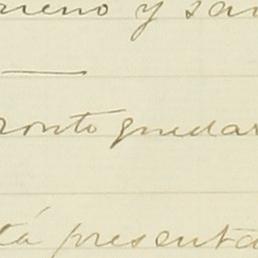 reno y sa
ronto quedar
tá presenta